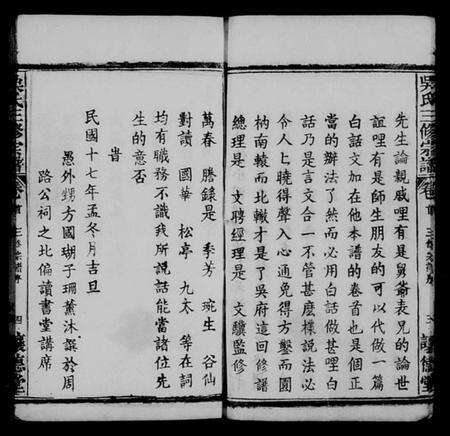 吳氏三修宗譜
卷首
三修宗譜序
讓德堂
先生論親戚哩有是舅爺表兄的論世
誼哩有是師生朋友的可以代做一篇
白話文加在他本譜的卷首也是個正
當的辦法了然而必用白話做甚哩白
話乃是言文合一不管甚麼樣說法必
令人上曉得聲入心通免得方鑿而圓
枘南轅而北轍才是了吳府這回修譜
總理是 文聘經理是 文驥監修
萬春 謄錄是 季芳 琬生 谷仙
對讀 國華 松亭 九太 等在詞
均有職務不識我所說話能當諸位先
生的意否
旹
民國十七年孟冬月吉旦
愚外甥方國瑚子珊薰沐譔於周
路公祠之北偏讀書堂講席
吳氏三修宗譜
卷首
三修宗譜序
四
讓德堂